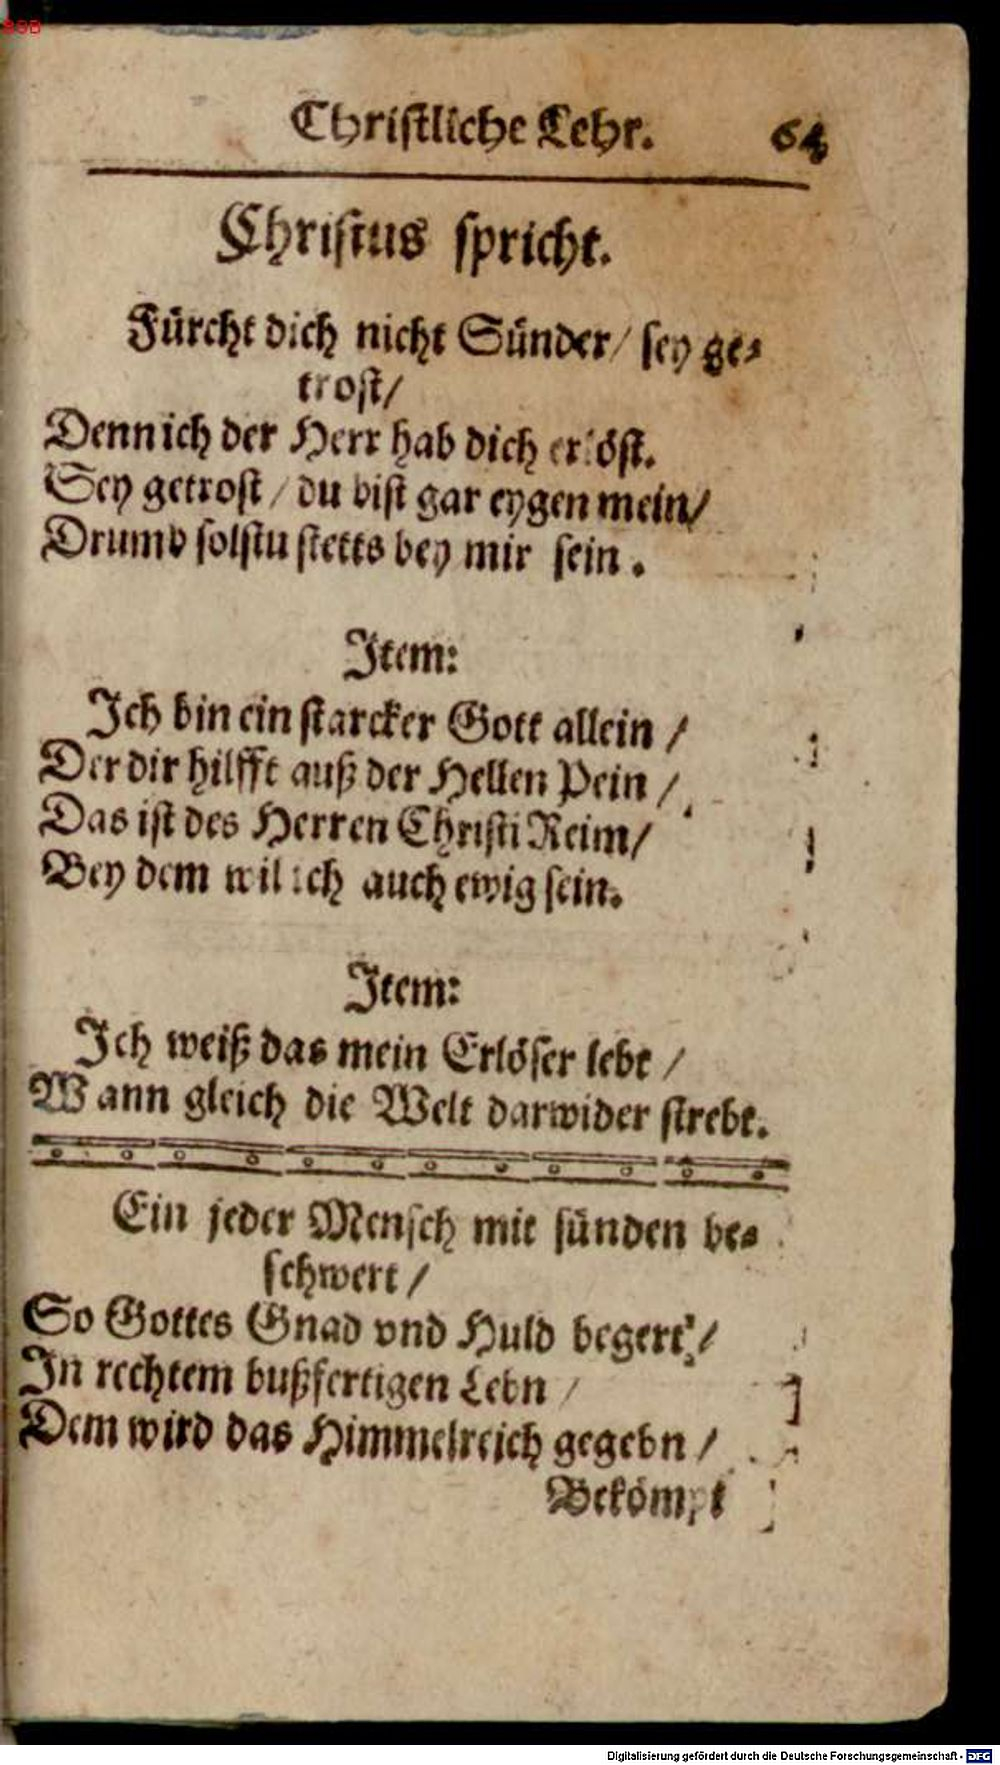 BSB
Christliche Lehr. 64
Christus spricht.
Fürcht dich nicht Sünder/ sey ge-
trost/
Denn ich der Herr hab dich erlöst.
Sey getrost / du bist gar eygen mein/
Drumb solstu stetts bey mir sein.
Item:
Ich bin ein starcker Gott allein /
Der dir hilfft auß der Hellen Pein /
Das ist des Herren Christi Reim/
Bey dem wil ich auch ewig sein.
Item:
Ich weiß das mein Erlöser lebt /
Wann gleich die Welt darwider strebt.
Ein jeder Mensch mit sünden be-
schwert /
So Gottes Gnad vnd Huld begert /
In rechtem bußfertigen Lebn /
Dem wird das Himmelreich gegebn /
Bekömpt
Digitalisierung gefördert durch die Deutsche Forschungsgemeinschaft - DFG